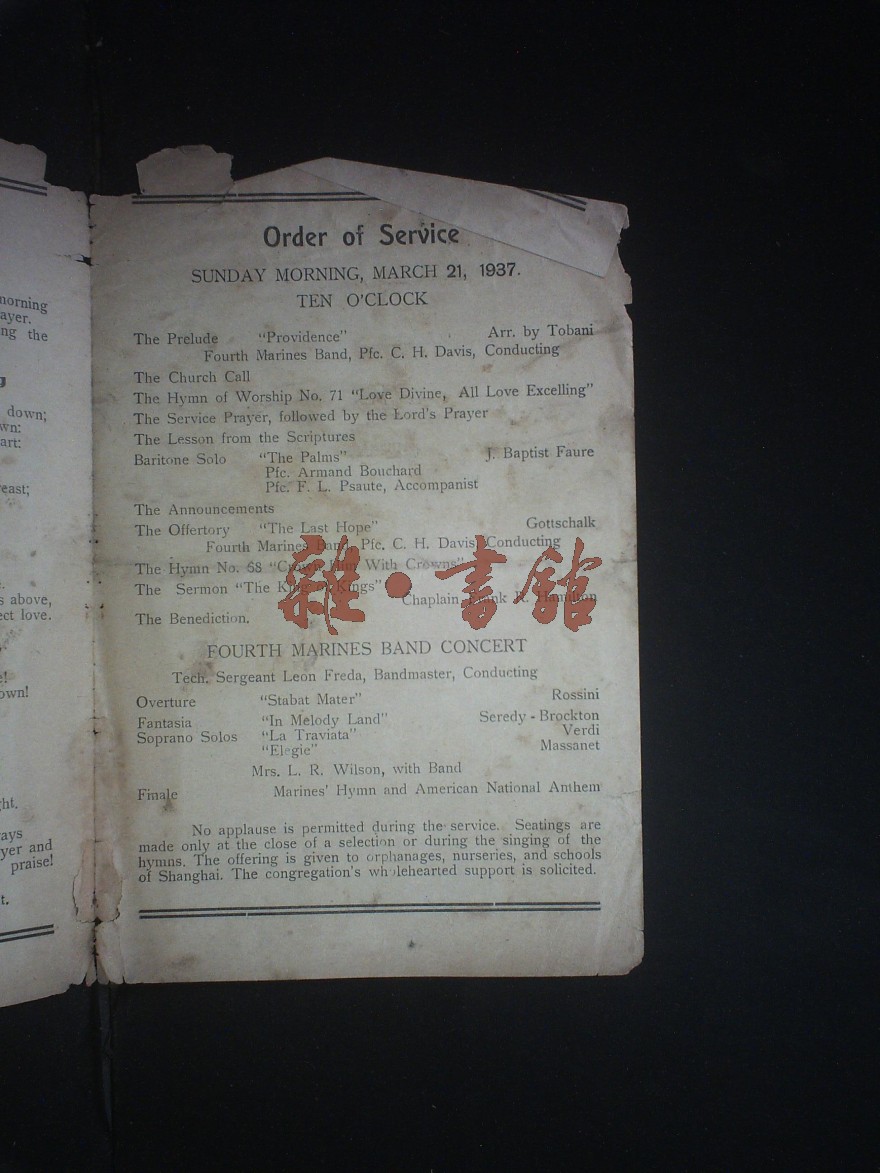 norning
ayer.
ng the
g
down;
wn:
art:
east;
s above,
ect love.
e!
own!
ght.
ays
yer and
praise!
t.
Order of Service
SUNDAY MORNING, MARCH 21, 1937.
TEN O'CLOCK
The Prelude "Providence" Arr. by Tobani
Fourth Marines Band, Pfc. C. H. Davis, Conducting
The Church Call
The Hymn of Worship No. 71 "Love Divine, All Love Excelling"
The Service Prayer, followed by the Lord's Prayer
The Lesson from the Scriptures
Baritone Solo "The Palms" J. Baptist Faure
Pfc. Armand Bouchard
Pfc. F. L. Psaute, Accompanist
The Announcements
The Offertory "The Last Hope" Gottschalk
Fourth Marines Band, Pfc. C. H. Davis, Conducting
The Hymn No. 68 "Crown Him With Crowns"
The Sermon "The King of Kings"
Chaplain Frank R. Hamilton
The Benediction.
雜·書館
FOURTH MARINES BAND CONCERT
Tech. Sergeant Leon Freda, Bandmaster, Conducting
Overture "Stabat Mater" Rossini
Fantasia "In Melody Land" Seredy - Brockton
Soprano Solos "La Traviata" Verdi
"Elegie" Massanet
Mrs. L. R. Wilson, with Band
Finale Marines' Hymn and American National Anthem
No applause is permitted during the service. Seatings are
made only at the close of a selection or during the singing of the
hymns. The offering is given to orphanages, nurseries, and schools
of Shanghai. The congregation's wholehearted support is solicited.